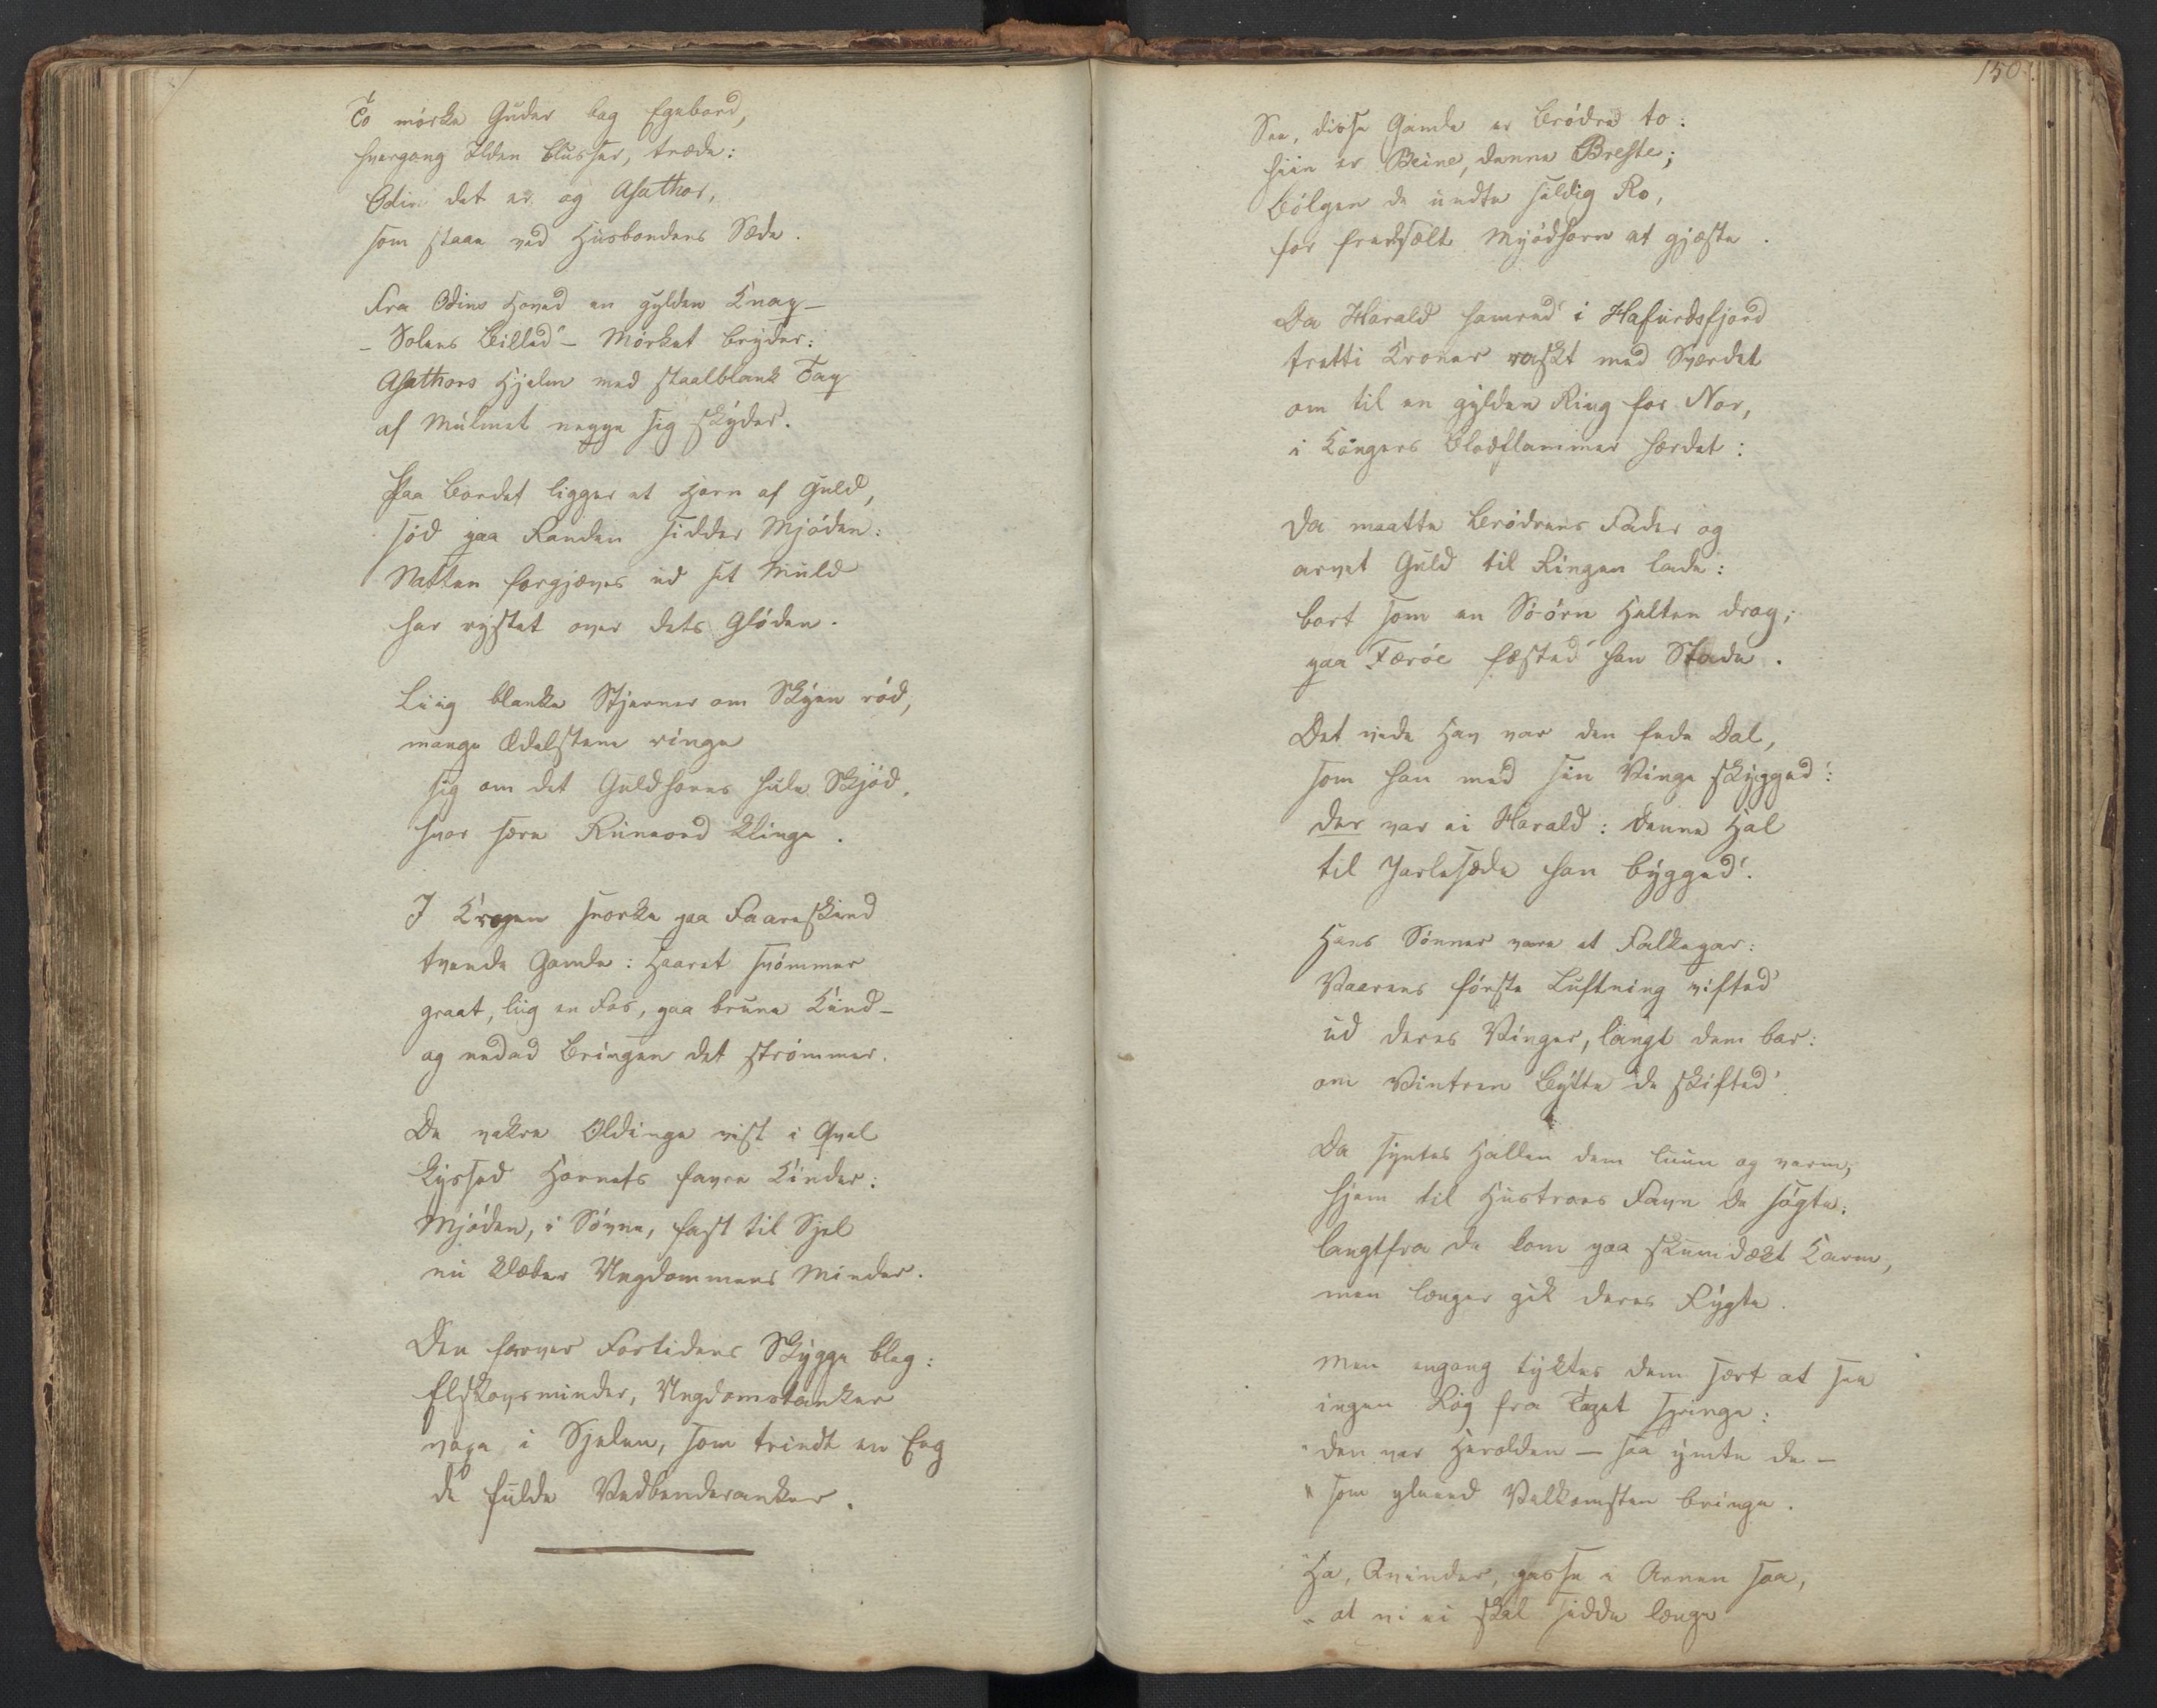 To mørke Guder bag Egebord,
hvergang Ilden blusser, træde:
Odin det er og Asathor,
som staae ved Husbondens Sæde.
Fra Odins Hoved en gylden Knap –
– Solens Billed' – Mørket bryder:
Asathors Hjelm med staalblank Tap
af Mulmet neppe sig skyder.
Paa Bordet ligger et Horn af Guld,
sød paa Randen sidder Mjøden:
Natten forgjæves ud sit Muld
har rystet over dets Gløden.
Liig blanke Stjerner om Skyen rød,
mange Ædelstene ringe
sig om det Guldhorns hule Skjød,
hvor sære Runeord klinge.
I Krogen snorke paa Faareskind
tvende Gamle: Haaret svømmer
graat, liig en Fos, paa brune Kind –
og nedad Bringen det strømmer.
De vakre Oldinge vist i Qvel
kyssed Hornets favre Kinder:
Mjøden, i Søvne, fast til Sjel
nu klæber Ungdommens Minder.
Den farver Fortidens Skygge bleg:
Elskovsminder, Ungdomstanker
voxe i Sjelen, som trindt en Eeg
de fulde Vedbenderanker.
150.
See, disse Gamle er Brødre to:
hiin er Beine, denne Breste;
Bølgen de undte sildig Ro,
for fredsælt Mjødhorn at gjæste.
Da Harald hamred' i Hafurdsfjord
tretti Kroner raskt med Sværdet
om til en gylden Ring for Nor,
i Kongers Blodflammer hærdet:
da maatte Brødrenes Fader og
arvet Guld til Ringen lade:
bort som en Sø-ørn Helten drog;
paa Færøe fæsted' han Stade.
Det vide Hav var den fede Dal,
som han med sin Vinge skygged':
der var ei Harald: denne Hal
til Jarlesæde han bygged'.
Hans Sønner vare et Falkepar:
Vaarens første Luftning vifted'
ud deres Vinger, langt dem bar:
om Vintren Bytte de skifted'.
Da syntes Hallen dem luun og varm;
hjem til Hustroes Favn de søgte:
langtfra de kom paa skumdækt Karm,
men længer gik deres Rygte.
Men engang tyktes dem sært at see
ingen Røg fra Taget springe:
"den var Herolden – saa ymte de –
"som pleied Velkomsten bringe.
"Ha, Qvinder, passe i Arnen saa,
"at vi ei skal sidde længe